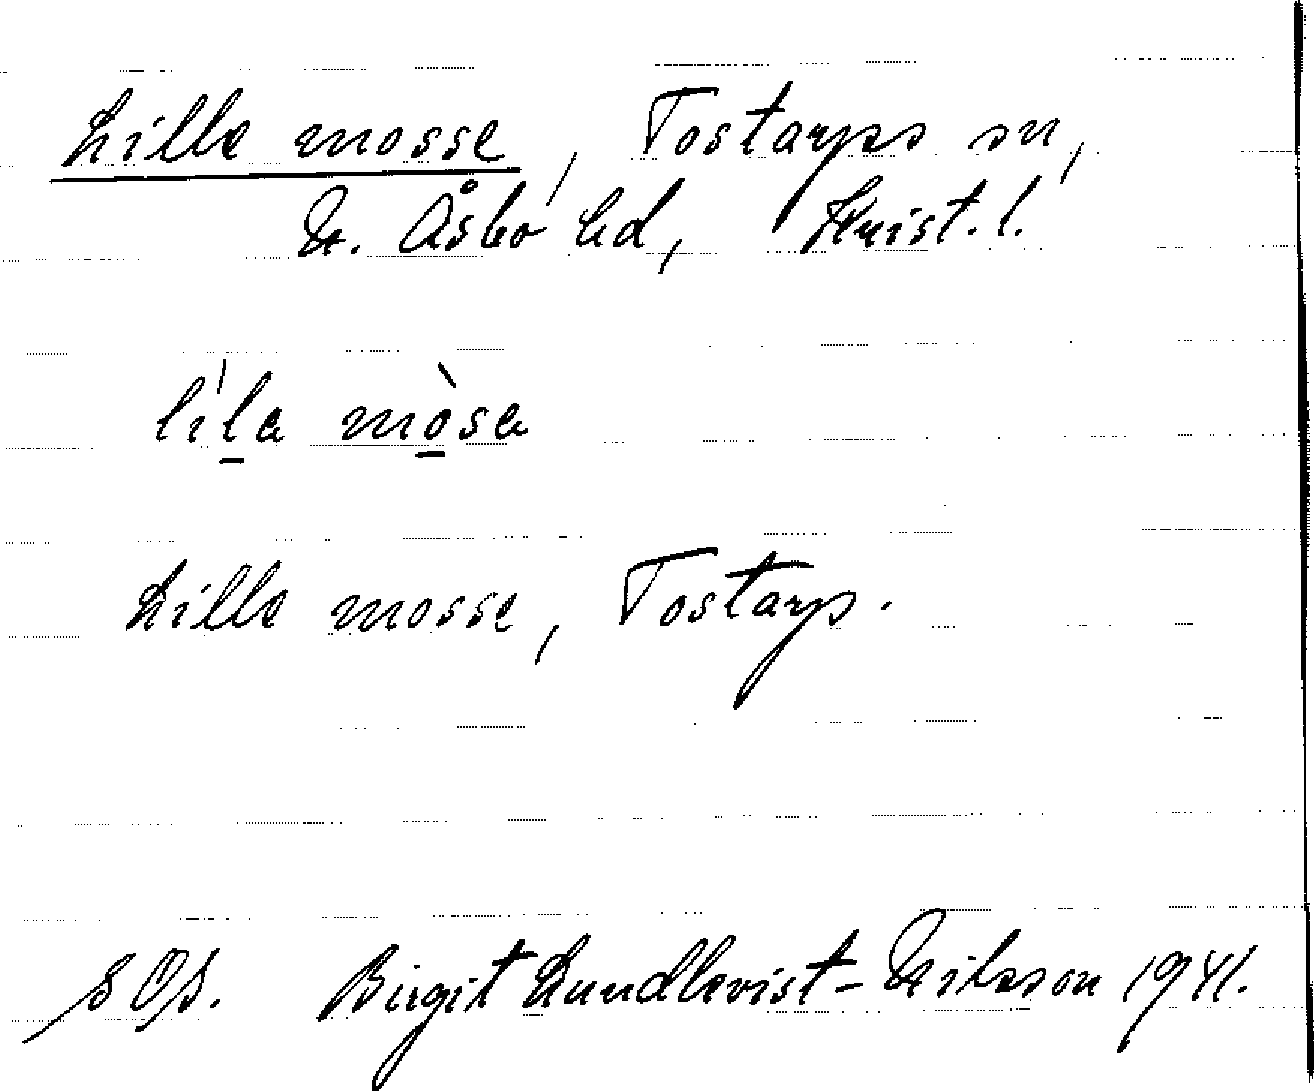 Lille mosse, Tostarps sn,
N. Åsbo hd, Krist. l.
li'la mòsa
Lille mosse, Tostarp.
SOS. Birgit Lundkvist-Nilsson 1941.